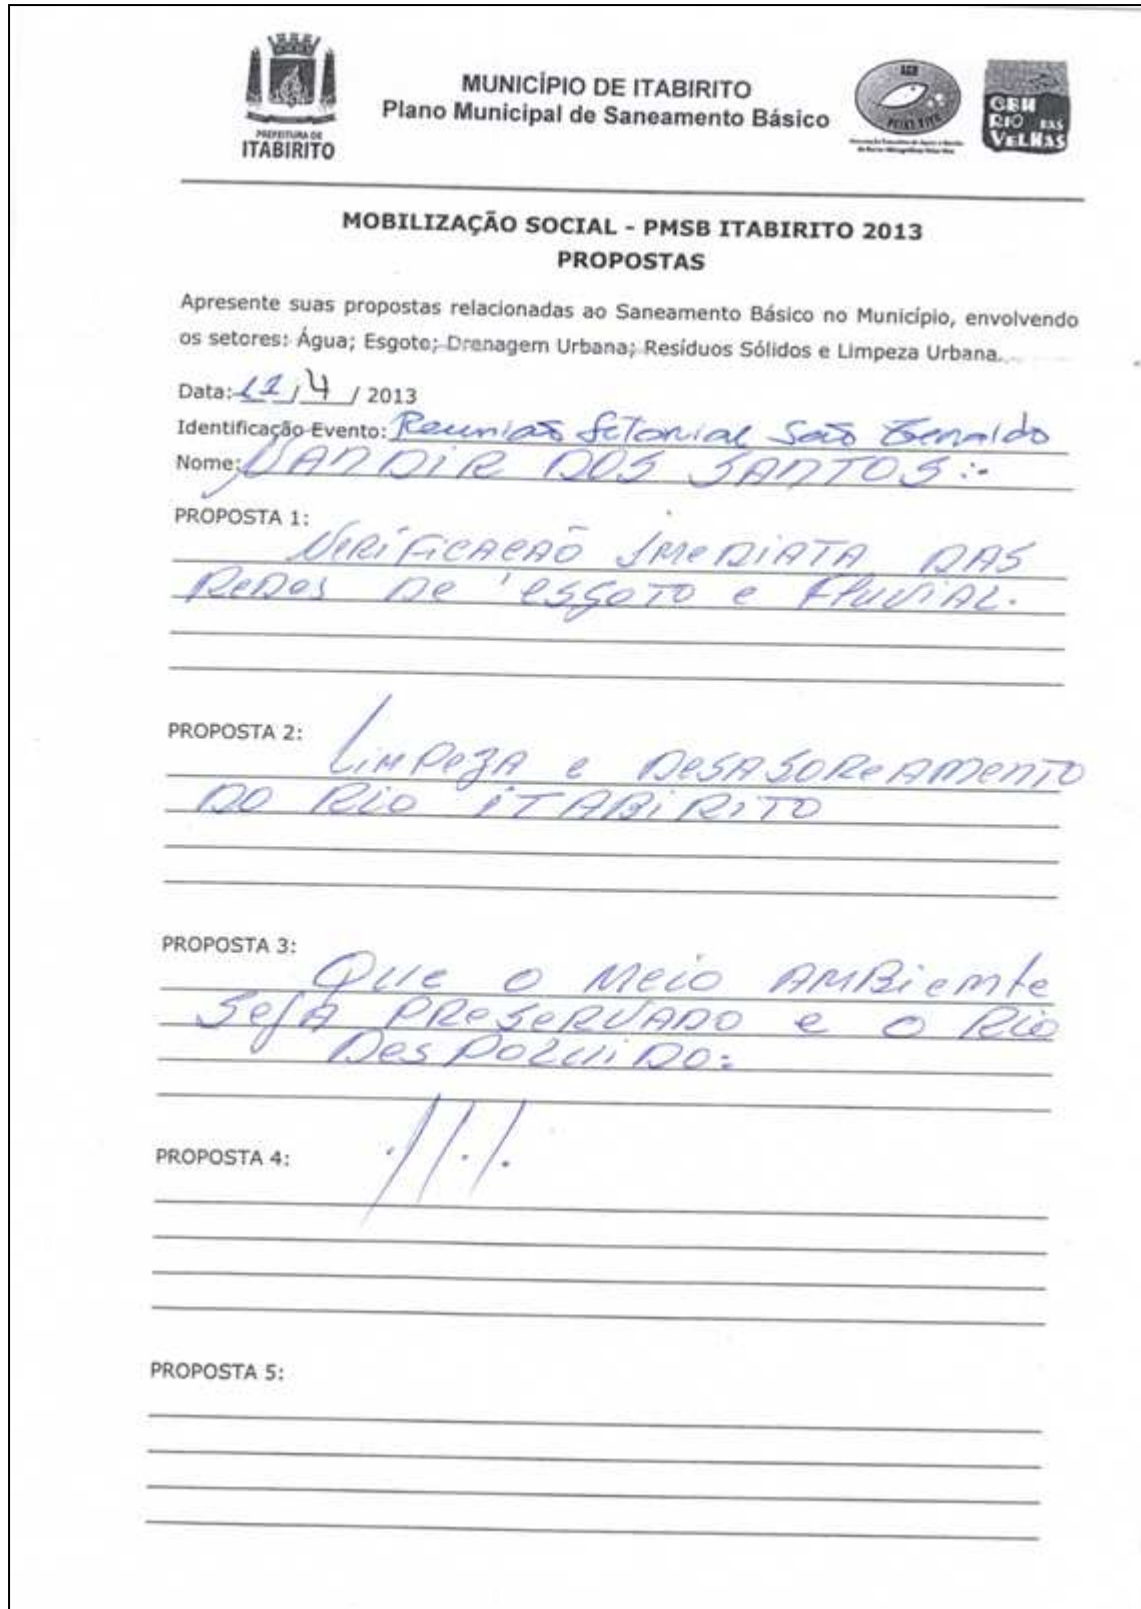 PREFEITURA DE
ITABIRITO
MUNICÍPIO DE ITABIRITO
Plano Municipal de Saneamento Básico
AGB
PEIXE VIVO
CBH
RIO DAS
VELHAS
MOBILIZAÇÃO SOCIAL - PMSB ITABIRITO 2013
PROPOSTAS
Apresente suas propostas relacionadas ao Saneamento Básico no Município, envolvendo
os setores: Água; Esgoto; Drenagem Urbana; Resíduos Sólidos e Limpeza Urbana.
Data: /4 / 2013
Identificação Evento: Reunião Setorial São Geraldo
Nome: VANDIR DOS SANTOS :-
PROPOSTA 1:
VERIFICAÇÃO IMEDIATA DAS
REDES DE ESGOTO e FLUVIAL.
PROPOSTA 2:
LIMPEZA e DESASOREAMENTO
DO RIO ITABIRITO
PROPOSTA 3:
QUE O MEIO AMBIEMTE
SEJA PRESERVADO e O RIO
DESPOLUIDO:
PROPOSTA 4:
PROPOSTA 5: